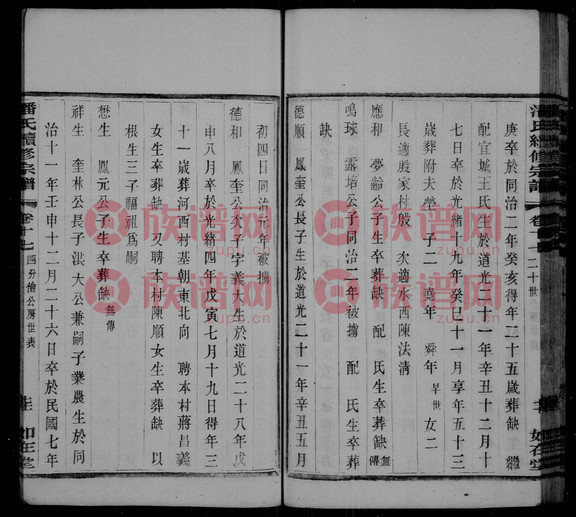 潘氏續修宗譜
卷十七
二十世
如在堂
庚卒於同治二年癸亥得年二十五歲葬缺 繼
配宣城王氏生於道光二十一年辛丑十二月十
七日卒於光緒十九年癸巳十一月享年五十三
歲葬附夫塋 子二 堯年 舜年早世 女二
長適殷家村殷 次適水西陳法清
應和 夢齡公子生卒葬缺 配 氏生卒葬缺無傳
鳴球 露培公子同治二年被擄 配 氏生卒葬
缺
德順 鳳奎公長子生於道光二十一年辛丑五月
初四日同治元年被擄
德和 鳳奎公次子字義大生於道光二十八年戊
申八月卒於光緒四年戊寅七月十九日得年三
十一歲葬河西村基朝東北向 聘本村蔣昌義
女生卒葬缺 又聘本村陳順女生卒葬缺 以
根生三子福祖爲嗣
懋生 鳳元公子生卒葬缺無傳
祥生 奎林公長子淇大公兼嗣子業農生於同
治十一年壬申十二月二十六日卒於民國七年
潘氏續修宗譜
卷十七
四分儉公房世表
如在堂
族谱网
www.zupu.cn